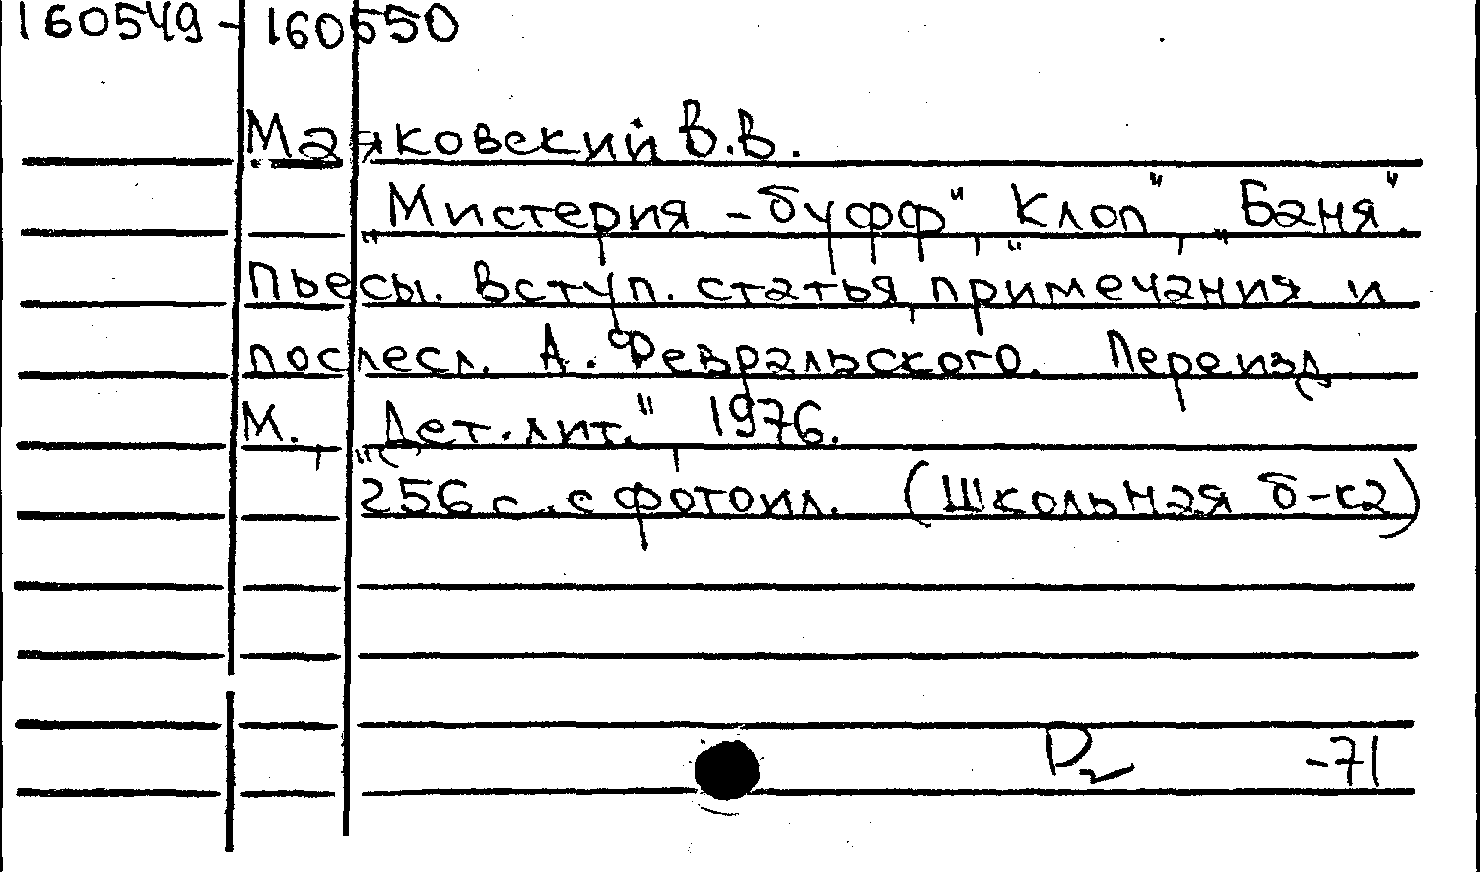 160549-160550
Маяковский В.В.
„Мистерия-буфф", „Клоп", „Баня".
Пьесы. Вступ. статья, примечания и
послесл. А. Февральского. Переизд
М., „Дет. лит.", 1976.
256 с. с фотоил. (Школьная б-ка)
Р2 -71